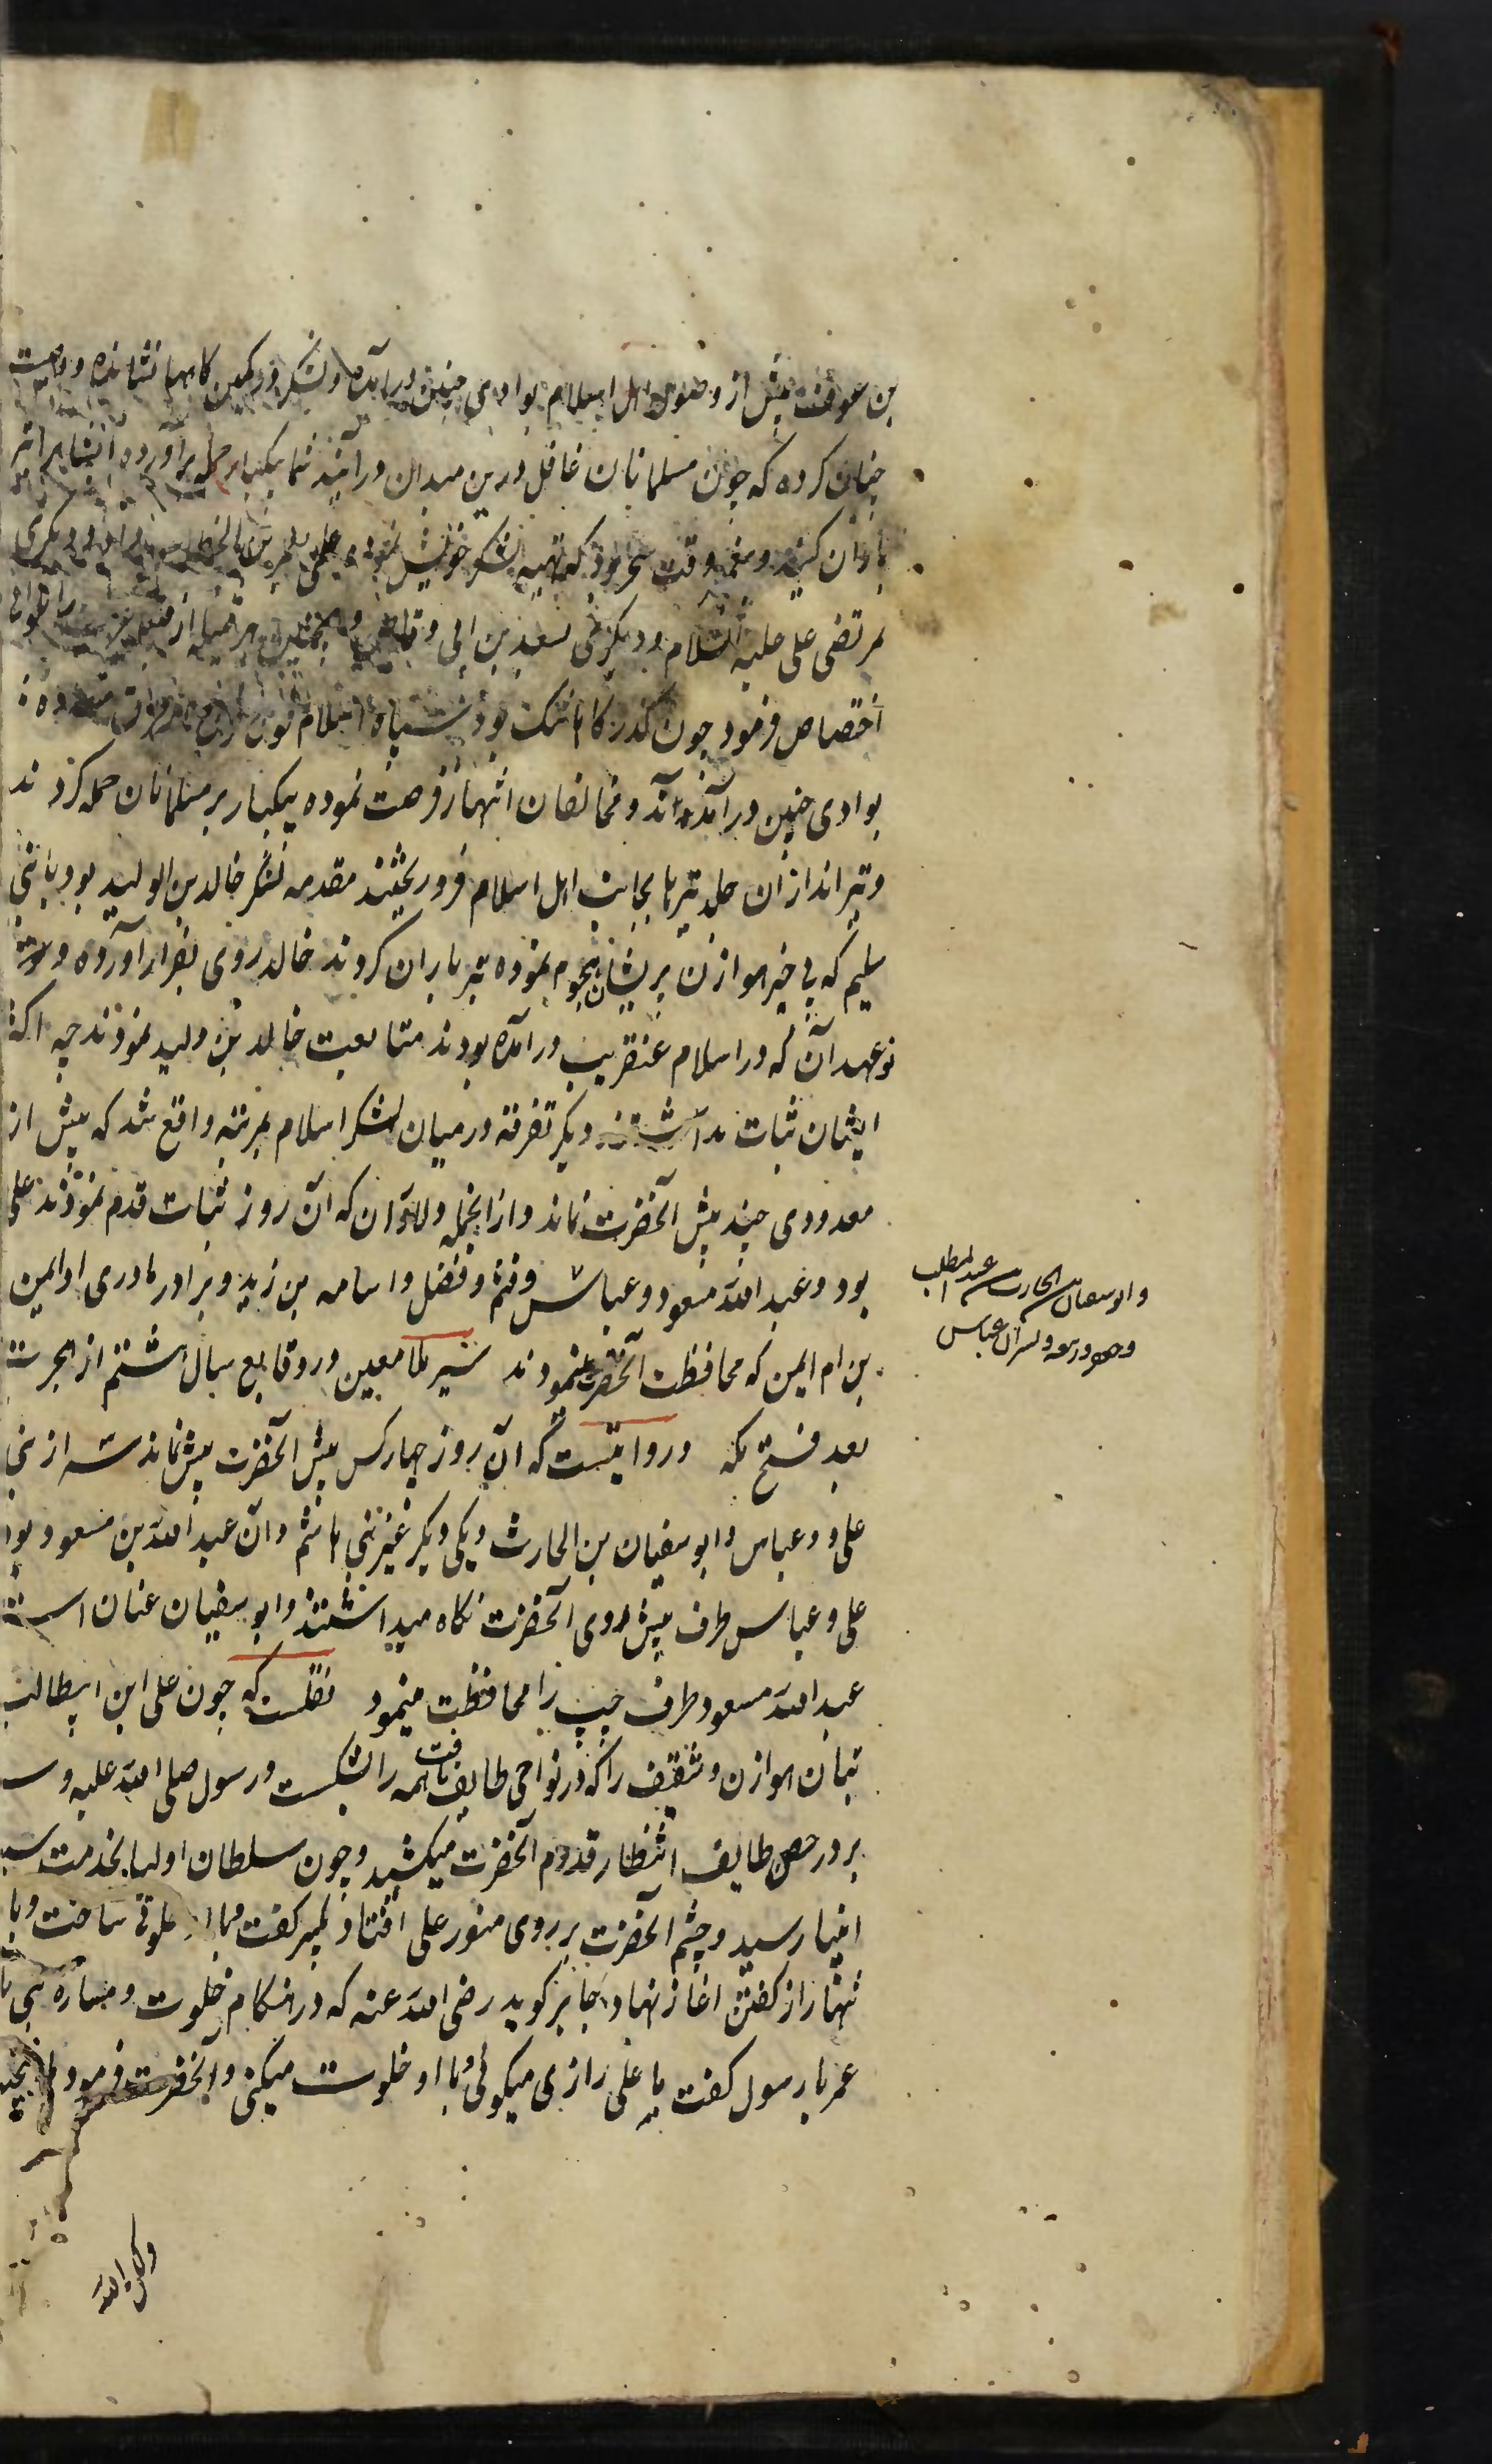 بن عوف پیش از وصول اهل اسلام بوادی حنین درآمده و لشکر در کمین کاهها نشانده و وصیت
چنان کرده که چون مسلمانان غافل درین میدان درآیند شما یکبار حمله برآورده ایشانرا تیر
باران کنید و پیغمبر وقت سحر بود که تهیه لشکر خویش نموده علمی بعمر بن الخطاب داد و دیکری
بمرتضی علی علیه السلام و دیکری بسعد بن ابی وقاص و همچنین هر قبیله از قبیله عرب را بلوائی
اختصاص فرمود چون کذرکاه تنک بود سپاه اسلام فوج فوج متفرق شده
بوادی حنین درآمده اند و مخالفان انتهاز فرصت نموده یکبار بر مسلمانان حمله کردند
و تیراندازان جلد تیرها بجانب اهل اسلام فرو ریختند مقدمه لشکر خالد بن الولید بود با بنی
سلیم که بی خبر هوازن بریشان هجوم نموده تیرباران کردند خالد روی بفرار آورده و
نوعهد آن که در اسلام عنقریب درآمده بودند متابعت خالد بن ولید نمودند چه اکثر
ایشان ثبات نداشتند دیکر تفرقه در میان لشکر اسلام بمرتبه واقع شد که بیش از
معدودی چند پیش آنحضرت نماند و از انجمله دلاوران که آن روز ثبات قدم نمودند علی
بود و عبد الله مسعود و عباس و قثم و فضل و اسامه بن زید و برادر مادری او ایمن
و ابو سفیان بن الحارث بن عبد المطلب
و جعفر و ربیعه و پسران عباس
بن ام ایمن که محافظت آنحضرت مینمودند سیر ملا معین در وقایع سال هشتم از هجرت
بعد فتح مکه و روایتست که آن روز چهار کس پیش آنحضرت بیش نماند سه از بنی
علی و عباس و ابو سفیان بن الحارث و یکی دیکر غیر بنی هاشم و آن عبد الله بن مسعود بود
علی و عباس طرف پیش روی آنحضرت نکاه میداشتند و ابو سفیان عنان است
عبد الله مسعود طرف چپ را محافظت مینمود نقلست که چون علی ابن ابیطالب
بتان هوازن و ثقیف را که در نواحی طایف یافت همه را بشکست و رسول صلی الله علیه و س
بر در حصن طایف انتظار قدوم آنحضرت میکشید و چون سلطان اولیا بخدمت سید
انبیا رسید و چشم آنحضرت بر روی منور علی افتاد تکبیر کفت و با او خلوتی ساخت و با
تنها راز کفتن اغاز نهاد جابر کوید رضی الله عنه که در هنکام خلوت و مساره نبی با
عمر با رسول کفت با علی رازی میکوئی و با او خلوت میکنی و آنحضرت فرمود ما انتجیته
ولکن الله